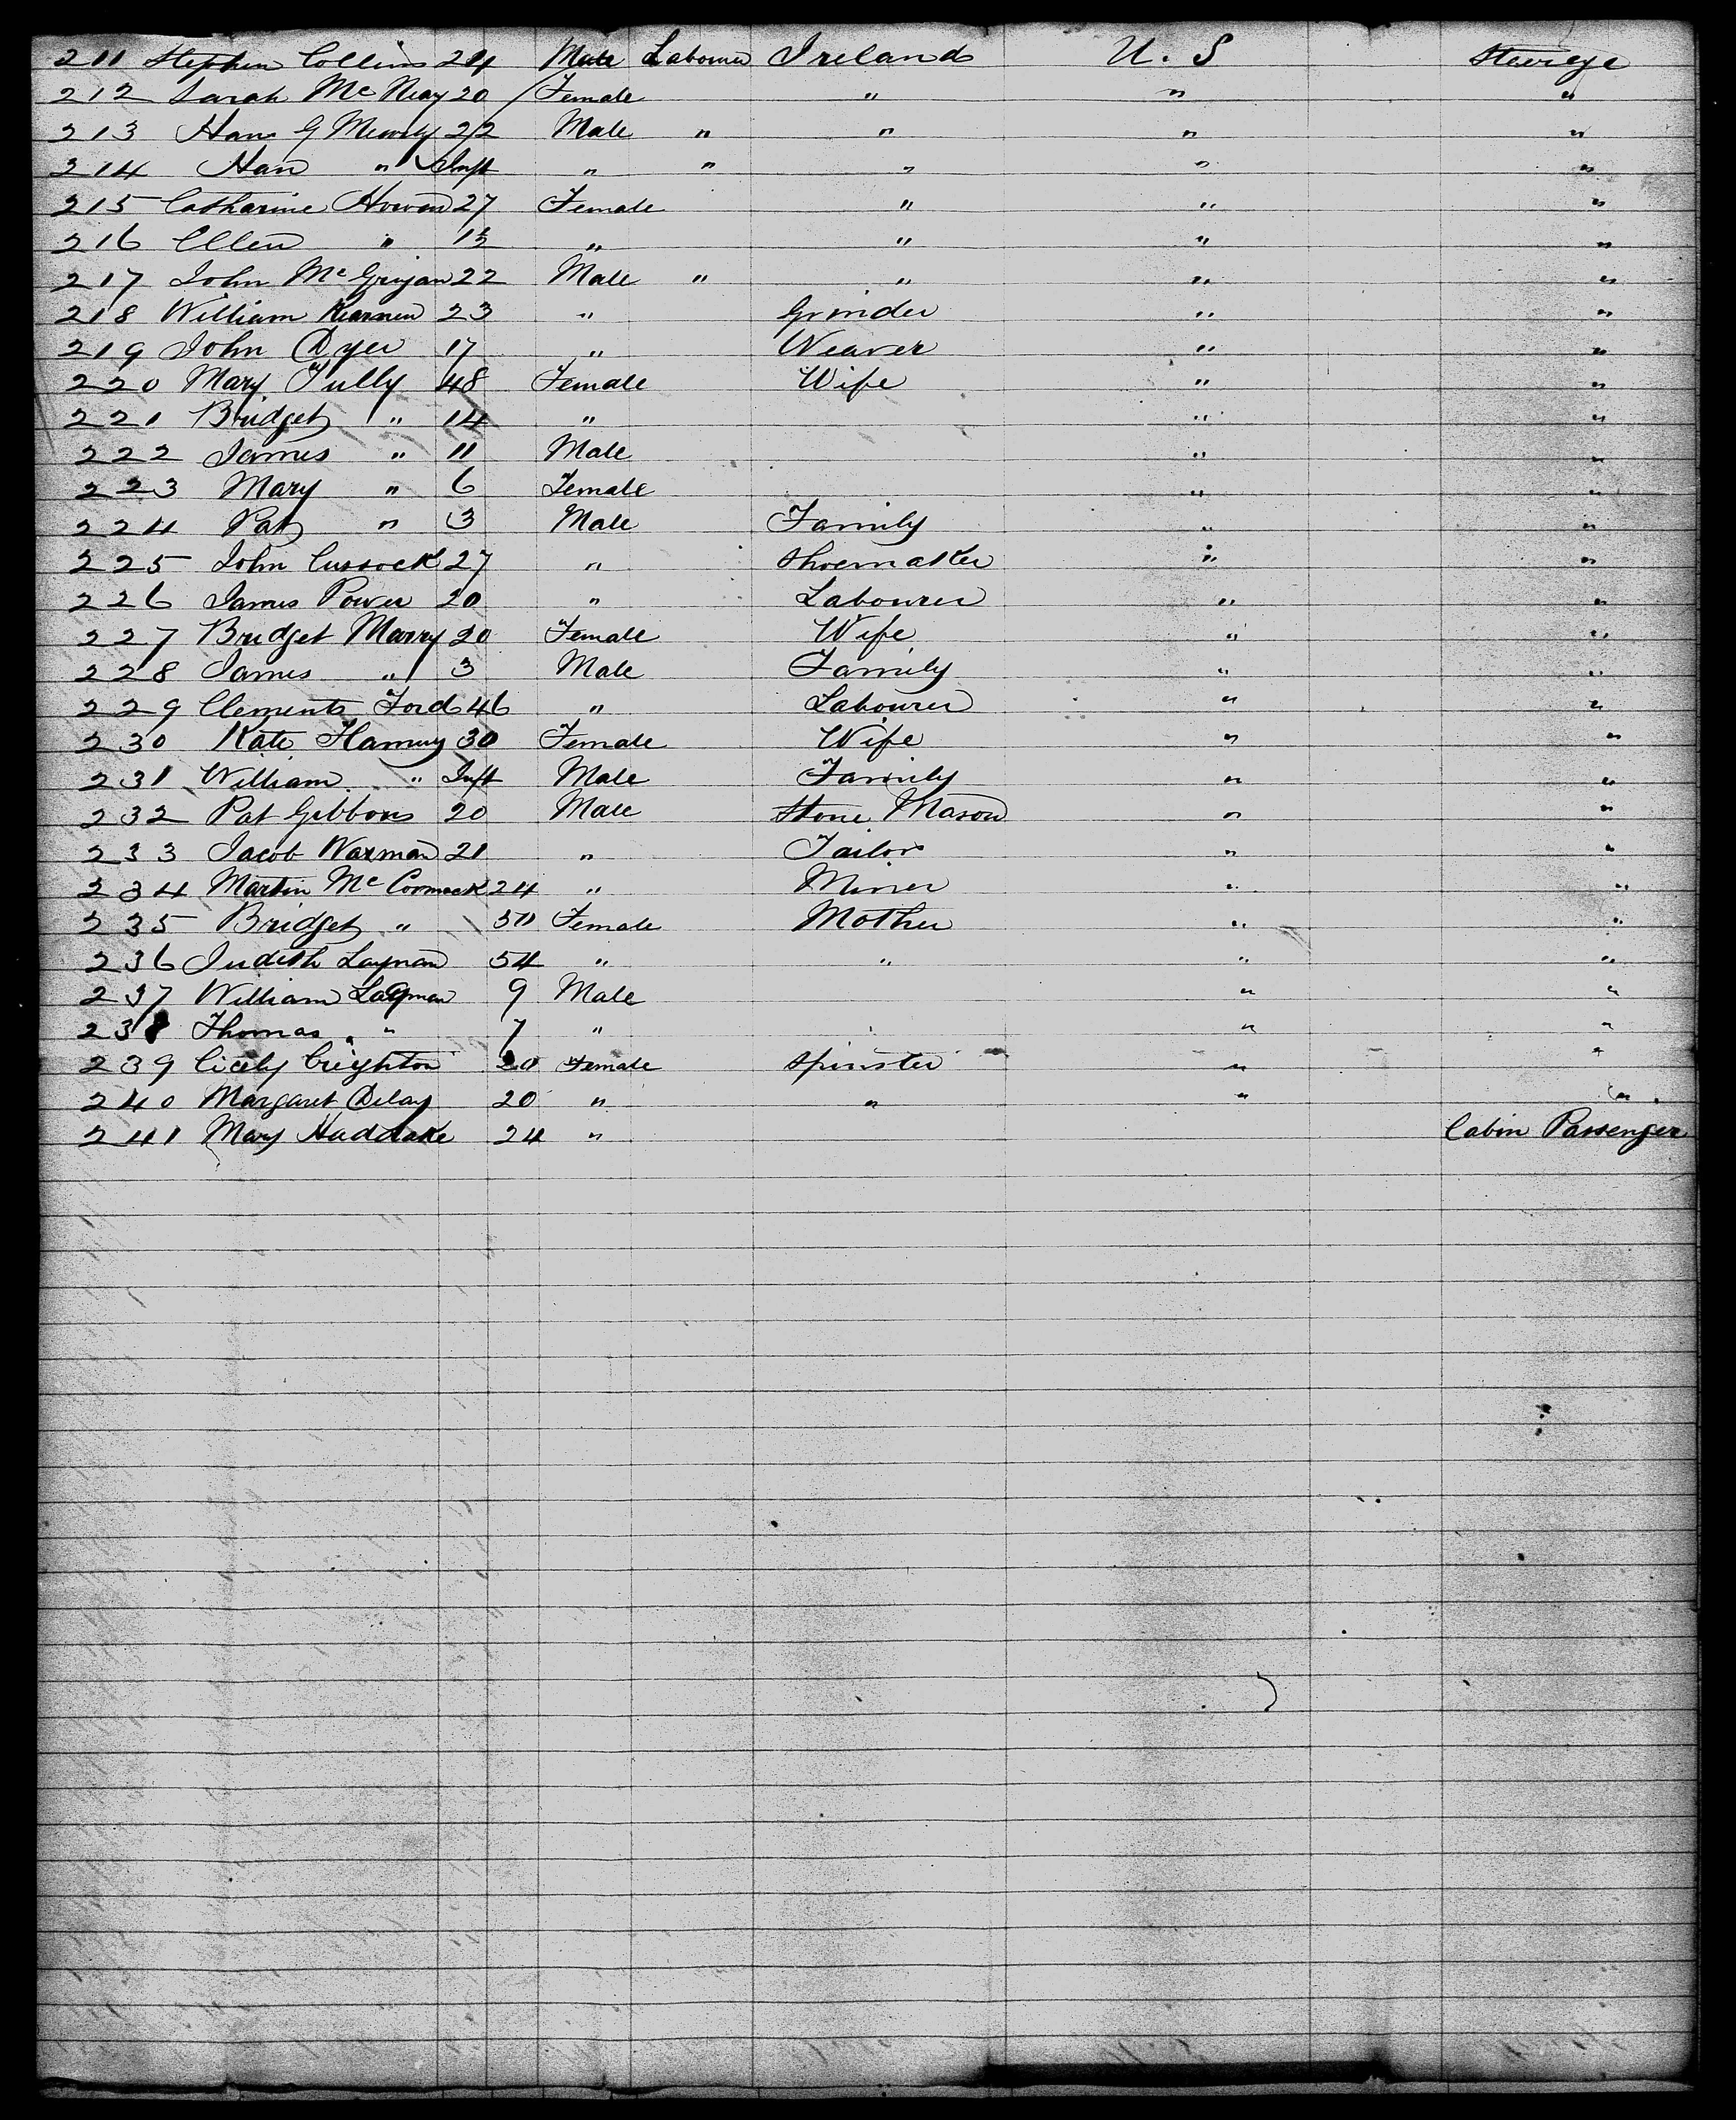 211 Stephen Collins 24 Male Labourer Ireland U. S Steerage
212 Sarah Mc Neay 20 Female " " "
213 Hans G 22 Male " " " "
214 Han " Inft " " " " "
215 Catharine 27 Female " " "
216 Ellen " 1½ " " " "
217 John Mc 22 Male " " " "
218 William 23 " Grinder " "
219 John Dyer 17 " Weaver " "
220 Mary Tully 48 Female Wife " "
221 Bridget " 14 " " "
222 James " 11 Male " "
223 Mary " 6 Female " "
224 Pat " 3 Male Family " "
225 John Cussock 27 " Shoemaker " "
226 James Power 20 " Labourer " "
227 Bridget Marry 20 Female Wife " "
228 James " 3 Male Family " "
229 Clements Ford 46 " Labourer " "
230 Kate 30 Female Wife " "
231 William " Inft Male Family " "
232 Pat Gibbons 20 Male Stone Mason " "
233 Jacob Waxman 21 " Tailor " "
234 Martin Mc Cormack 24 " Miner " "
235 Bridget " 50 Female Mother " "
236 Judith Layman 54 " " " "
237 William Layman 9 Male " "
238 Thomas " 7 " " "
239 Cicely Creighton 20 Female Spinster " "
240 Margaret Delay 20 " " " "
241 Mary 24 " Cabin Passenger